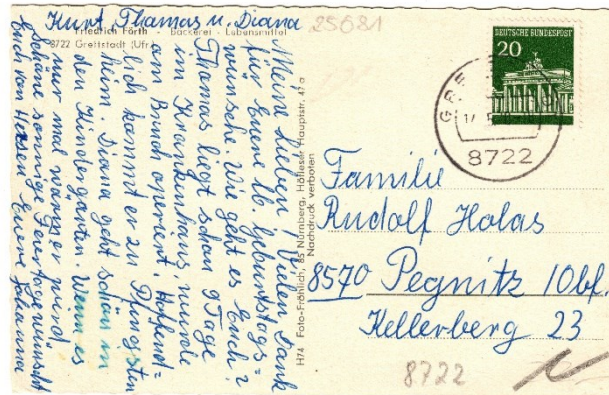 Friedrich Förth - Bäckerei - Lebensmittel
8722 Grettstadt (Ufr.)
25681
Meine Lieben! Vielen Dank
für Eure lb. Geburtstags=
wünsche. Wie geht es Euch?
Thomas liegt schon 9 Tage
im Krankenhaus, wurde
am Bruch operiert. Hoffent=
lich kommt er zu Pfingsten
heim. Diana geht schön in
den Kindergarten. Wenn es
nur mal wärmer wird.
Schöne sonnige Feiertage wünscht
Euch von Herzen Eure
Kurt, Thomas u. Diana
H74 Foto-Fröhlich, 85 Nürnberg, Höfleser Hauptstr. 47a
Nachdruck verboten
DEUTSCHE BUNDESPOST
20
8722
Familie
Rudolf Holas
8570 Pegnitz /Obf.
Kellerberg 23
8722